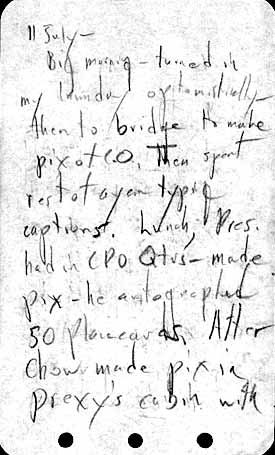 11 July—
Big morning - turned in
my laundry optimistically—
then to bridge to make
pix of C.O. Then spent
rest of a.m. typing
captions. Lunch, Pres.
had in CPO Qtrs - made
pix - he autographed
50 placecards. After
chow made pix in
Prexy's cabin with